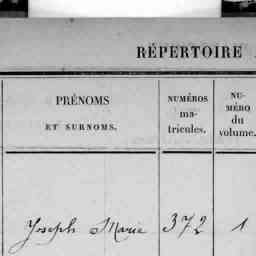 RÉPERTOIRE
PRÉNOMS
ET SURNOMS.
NUMÉROS
ma-
tricules.
NU-
MÉRO
du
volume.
Joseph Marie 372 1